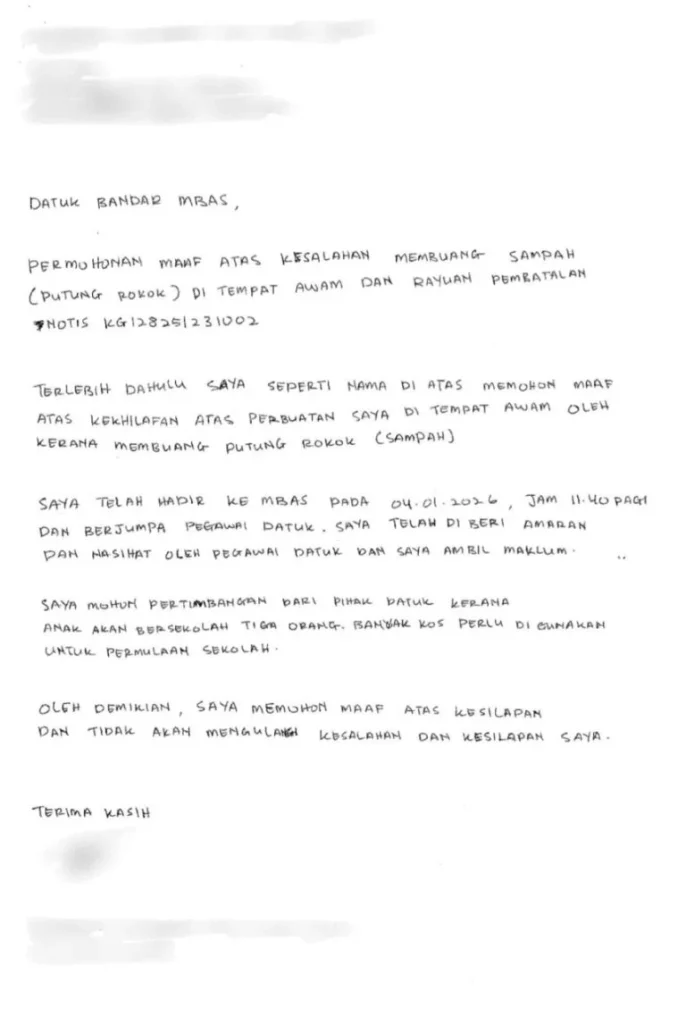 DATUK BANDAR MBAS,
PERMOHONAN MAAF ATAS KESALAHAN MEMBUANG SAMPAH
(PUTUNG ROKOK) DI TEMPAT AWAM DAN RAYUAN PEMBATALAN
NOTIS KG128251231002
TERLEBIH DAHULU SAYA SEPERTI NAMA DI ATAS MEMOHON MAAF
ATAS KEKHILAFAN ATAS PERBUATAN SAYA DI TEMPAT AWAM OLEH
KERANA MEMBUANG PUTUNG ROKOK (SAMPAH)
SAYA TELAH HADIR KE MBAS PADA 04.01.2026, JAM 11.40 PAGI
DAN BERJUMPA PEGAWAI DATUK. SAYA TELAH DI BERI AMARAN
DAN NASIHAT OLEH PEGAWAI DATUK DAN SAYA AMBIL MAKLUM.
SAYA MOHON PERTIMBANGAN DARI PIHAK DATUK KERANA
ANAK AKAN BERSEKOLAH TIGA ORANG. BANYAK KOS PERLU DI GUNAKAN
UNTUK PERMULAAN SEKOLAH.
OLEH DEMIKIAN, SAYA MEMOHON MAAF ATAS KESILAPAN
DAN TIDAK AKAN MENGULANGI KESALAHAN DAN KESILAPAN SAYA.
TERIMA KASIH